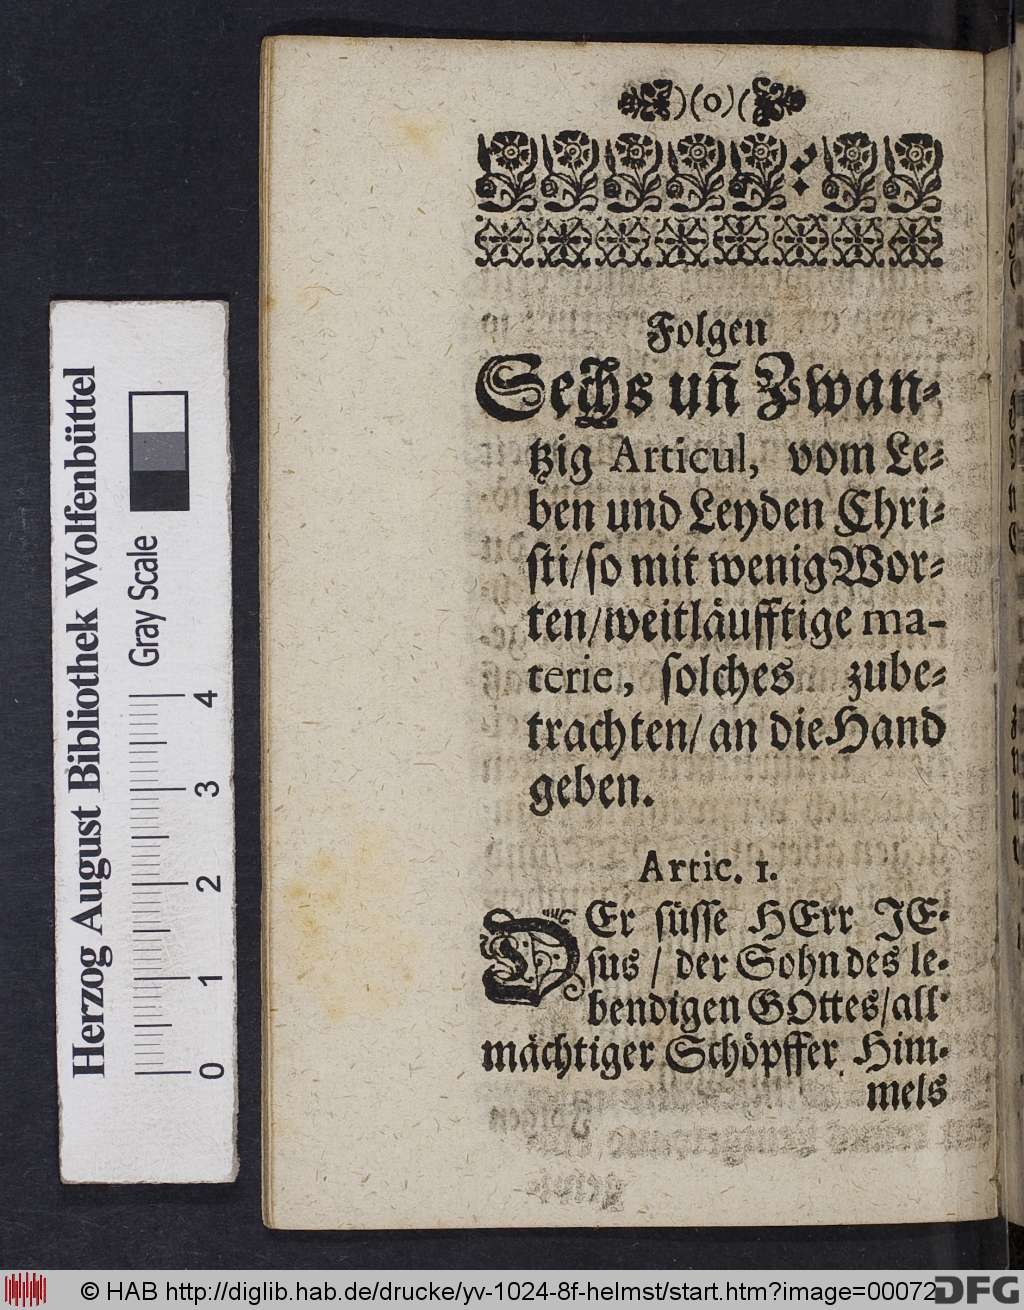 )(o)(
Folgen
Sechs uñ Zwan-
tzig Articul, vom Le-
ben und Leyden Chri-
sti/so mit wenig Wor-
ten/weitläufftige ma-
terie, solches zube-
trachten/an die Hand
geben.
Artic. 1.
DEr süsse HErr JE-
sus / der Sohn des le-
bendigen GOttes/all-
mächtiger Schöpffer Him-
mels
Herzog August Bibliothek Wolfenbüttel
Gray Scale
0 1 2 3 4
© HAB http://diglib.hab.de/drucke/yv-1024-8f-helmst/start.htm?image=00072
DFG